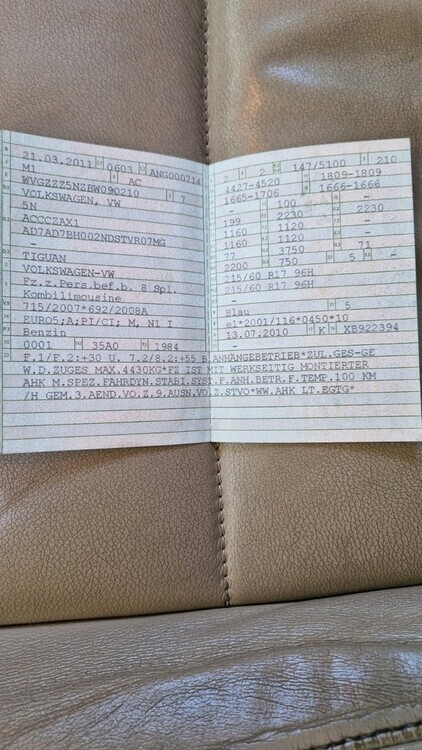 21.03.2011 0603 ANG000714
M1 AC
WVGZZZ5NZBW090210 7
VOLKSWAGEN, VW
5N
ACCCZAX1
AD7AD7BH002NDSTVR07MG
-
TIGUAN
VOLKSWAGEN-VW
Fz.z.Pers.bef.b. 8 Spl.
Kombilimousine
715/2007*692/2008A
EURO5;A;PI/CI; M, N1 I
Benzin
0001 35A0 1984
2 2 147/5100 210
4427-4520 1809-1809
1665-1706 1666-1666
- 100 -
199 2230 2230
1160 1120 -
1160 1120 -
77 3750 71
2200 750 5 -
215/60 R17 96H
215/60 R17 96H
-
Blau 5
e1*2001/116*0450*10
13.07.2010 K XB922394
-
F.1/F.2:+30 U. 7.2/8.2:+55 B.ANHÄNGEBETRIEB*ZUL.GES-GE
W.D.ZUGES MAX.4430KG*FZ IST MIT WERKSEITIG MONTIERTER
AHK M.SPEZ.FAHRDYN.STABI.SYST.F.ANH.BETR.F.TEMP.100 KM
/H GEM.3.AEND.VO.Z.9.AUSN.VO.Z.STVO*WW.AHK LT.EGTG*